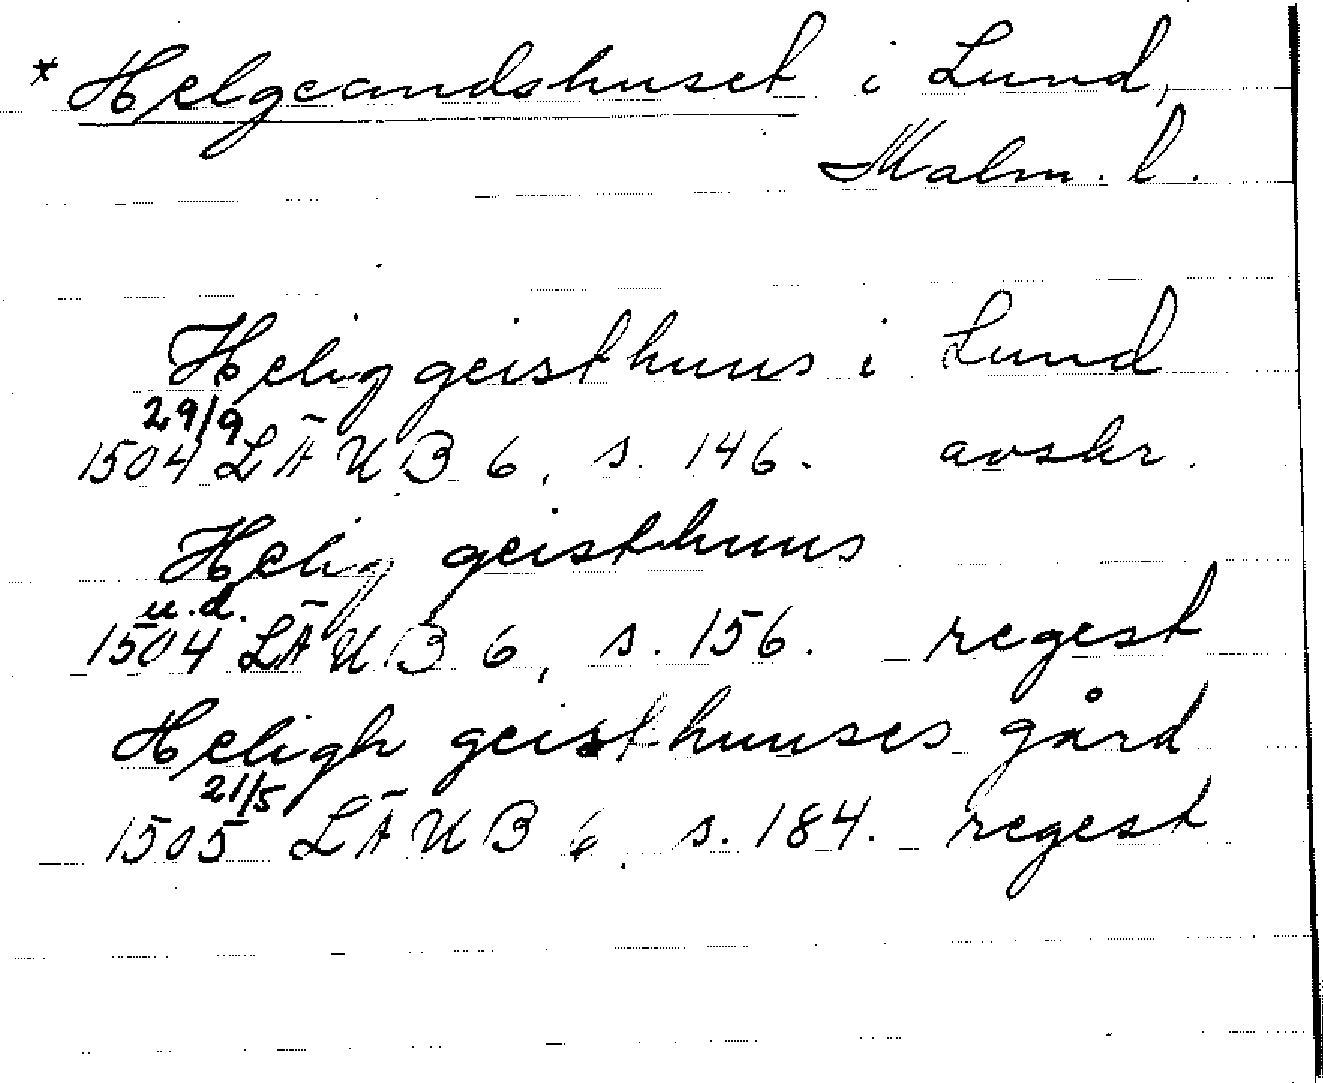 * Helgeandshuset i Lund,
Malm. l.
Helig geisthuus i Lund
29/9
1504 LÄUB 6, s. 146. avskr.
Helig geisthuus
u.d.
1504 LÄUB 6, s. 156. regest
Heligh geisthuuses gård
21/5
1505 LÄUB 6, s. 184. regest